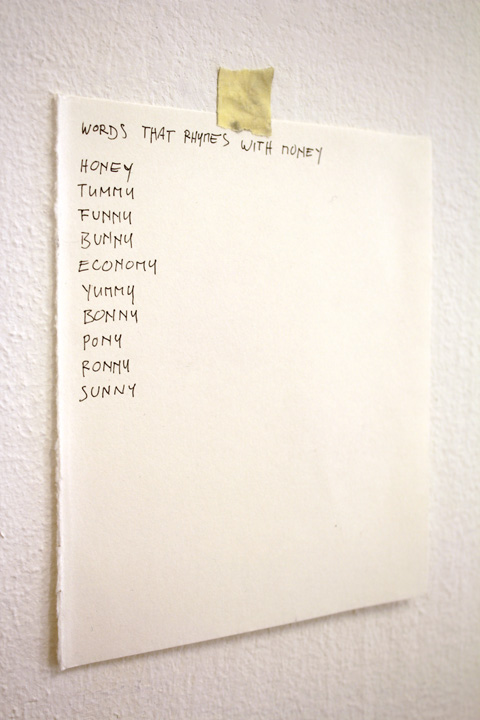 WORDS THAT RHYMES WITH MONEY
HONEY
TUMMY
FUNNY
BUNNY
ECONOMY
YUMMY
BONNY
PONY
RONNY
SUNNY